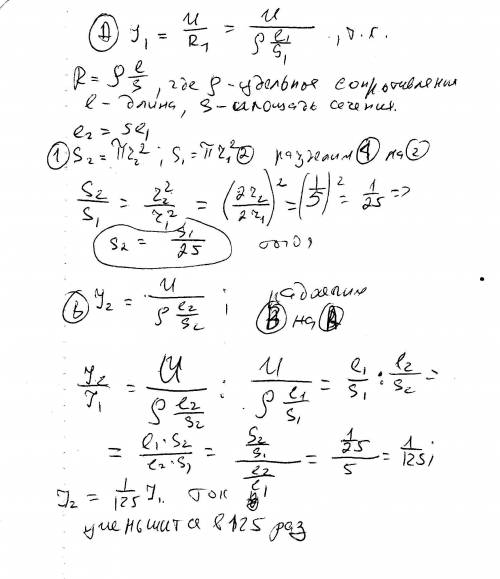 Ⓐ I₁ = U/R₁ = U/(ρ l₁/S₁), т.к.
R = ρ l/S, где ρ - удельное сопротивления
l - длина, S - площадь сечения.
l₂ = 5l₁
① S₂ = πr₂²; S₁ = πr₁² ② разделим ① на ②
S₂/S₁ = r₂²/r₁² = (2r₂/2r₁)² = (1/5)² = 1/25 =>
S₂ = S₁/25
Ⓑ I₂ = U/(ρ l₂/S₂);
Ⓑ на Ⓐ
I₂/I₁ = U/(ρ l₂/S₂) : U/(ρ l₁/S₁) = l₁/S₁ : l₂/S₂ =
= l₁·S₂/l₂·S₁ = (S₂/S₁)/(l₂/l₁) = (1/25)/5 = 1/125;
I₂ = 1/125 I₁. ток
уменьшится в 125 раз